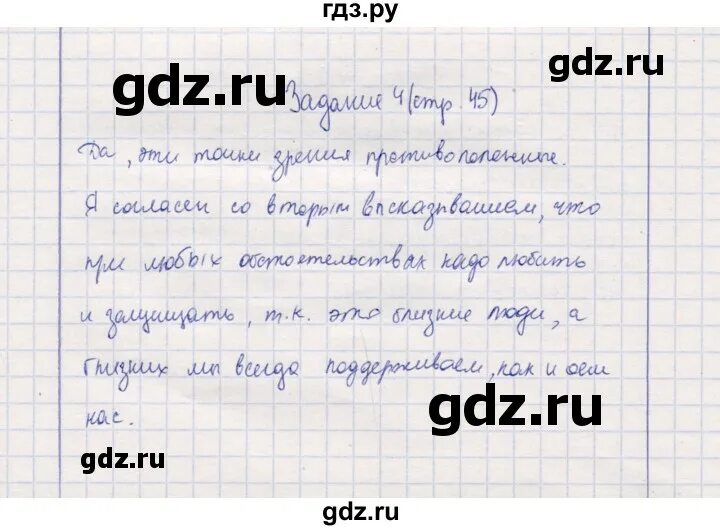 гдз.ру
gdz.ru
gdz.ru
Задание 4 (стр. 45)
Да, эти точки зрения противоположные.
Я согласен со вторым высказыванием, что
при любых обстоятельствах надо любить
и защищать, т.к. это близкие люди, а
близких мы всегда поддерживаем, как и они
нас.
gdz.ru
gdz.ru
gdz.ru